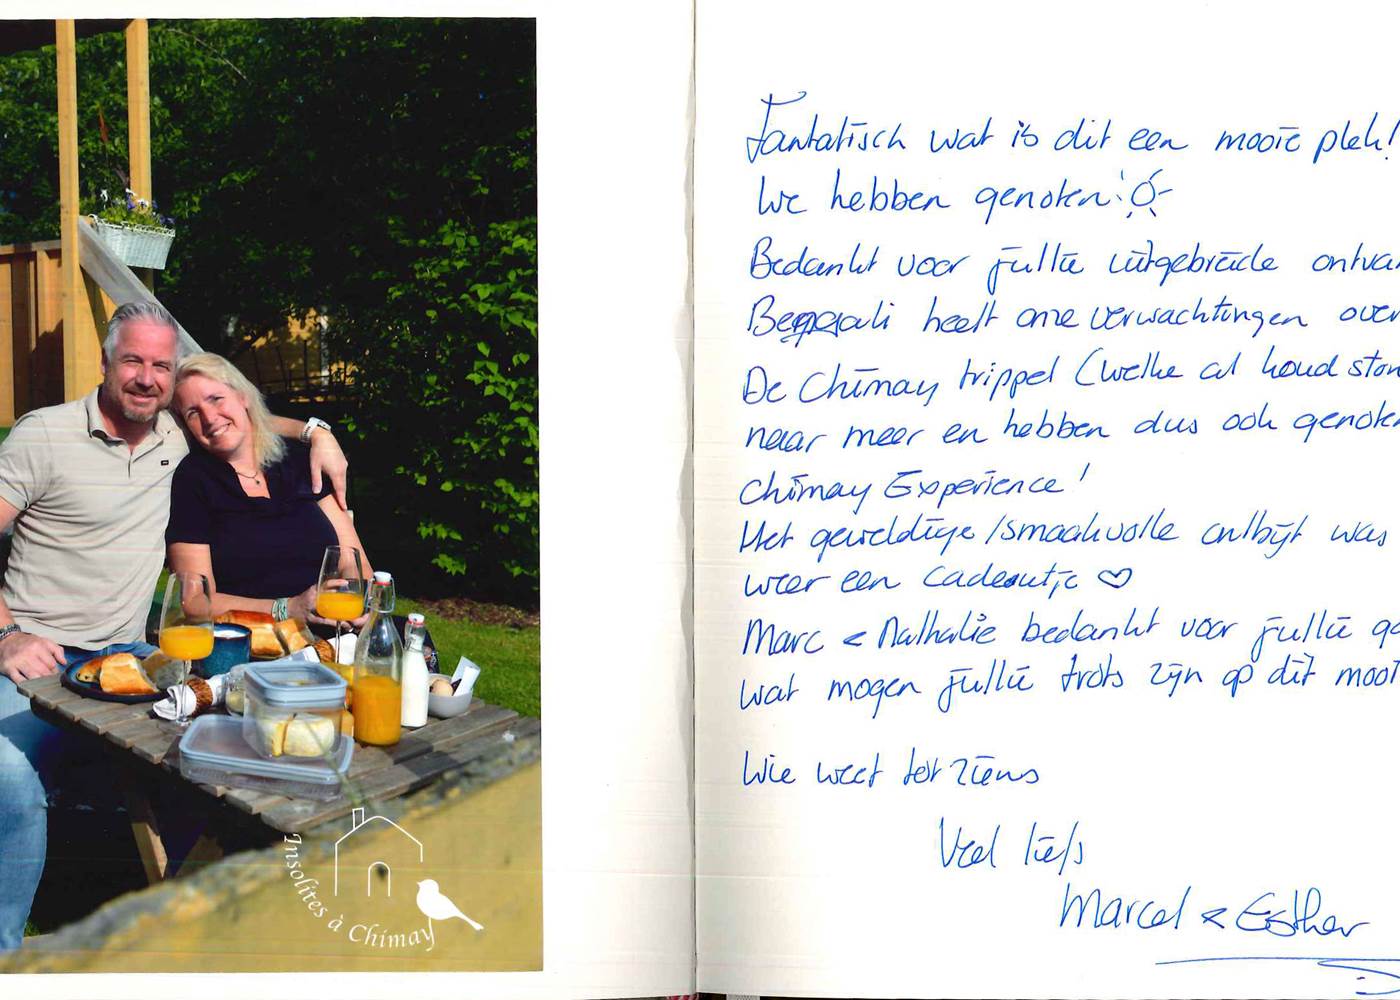 Insolites à Chimay
Fantatisch wat is dit een mooie plek!
We hebben genoten!
Bedankt voor jullie uitgebreide ontva
heeft onze verwachtingen over
De Chimay trippel (welke al houd ston
naar meer en hebben dus ook genoten
Chimay Experience!
Het geweldige/smaakvolle ontbijt was
weer een cadeautje ♡
Marc & Nathalie bedankt voor jullie ga
wat mogen jullie trots zijn op dit mooi
Wie weet tot ziens
Veel liefs
Marcel & Esther